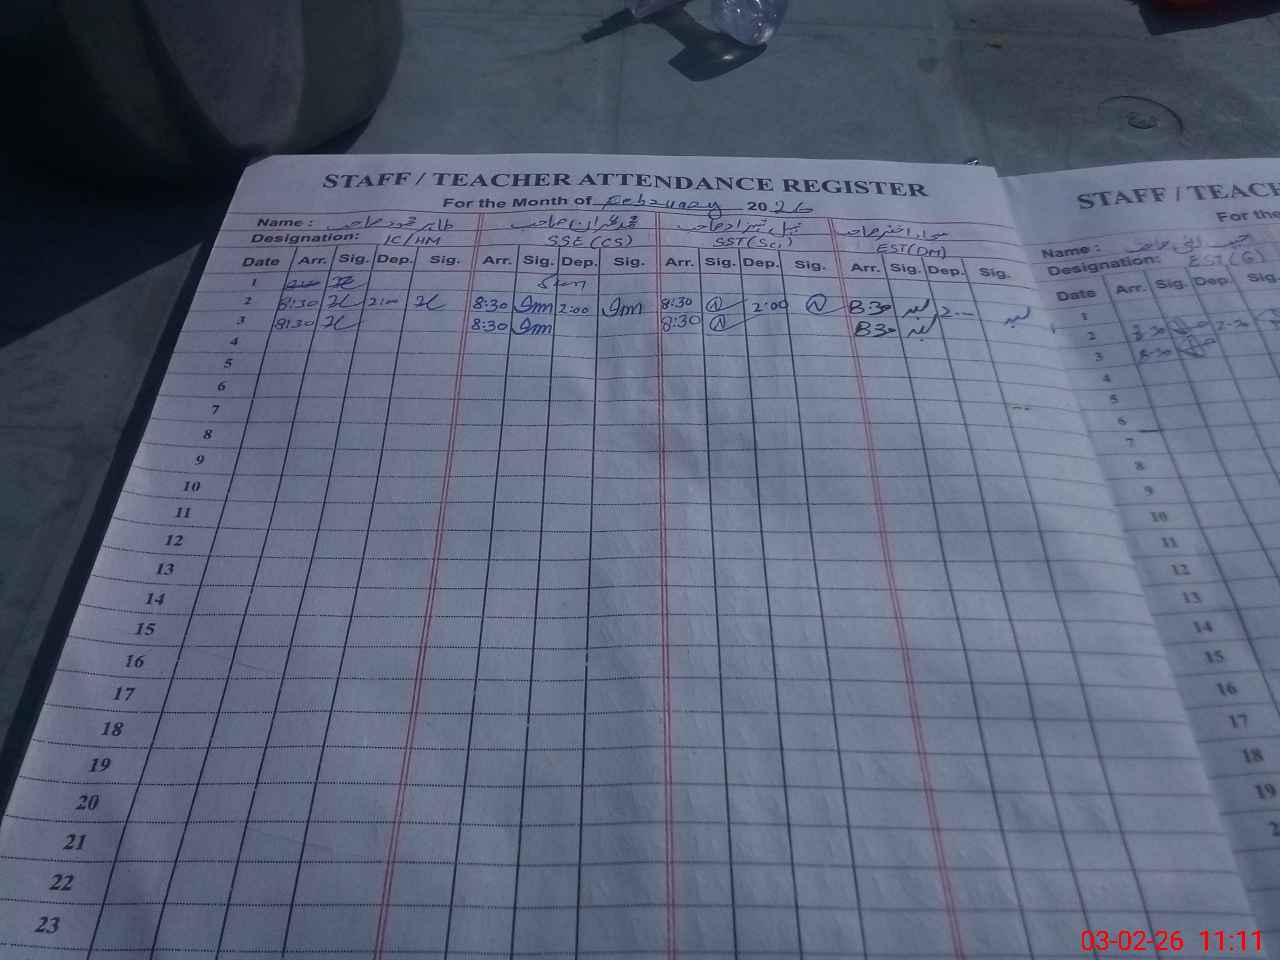 STAFF / TEACHER ATTENDANCE REGISTER
For the Month of February 2026
Name : طاہر محمود صاحب محمد عمران صاحب نبیل شہزاد صاحب اختر صاحب
Designation: IC/HM SSE (CS) SST(Sci) EST(DM)
Date Arr. Sig. Dep. Sig. Arr. Sig. Dep. Sig. Arr. Sig. Dep. Sig. Arr. Sig. Dep. Sig.
1 Sun
2 8:30 2:00 8:30 2:00 8:30 2:00 8:30 2:00
3 8:30 8:30 8:30 8:30
4
5
6
7
8
9
10
11
12
13
14
15
16
17
18
19
20
21
22
23
STAFF / TEACH
For the
Name : صاحب
Designation: EST(G)
Date Arr. Sig. Dep. Sig.
1
2 8:30
3 8:30
4
5
6
7
8
9
10
11
12
13
14
15
16
17
18
19
2
03-02-26 11:11